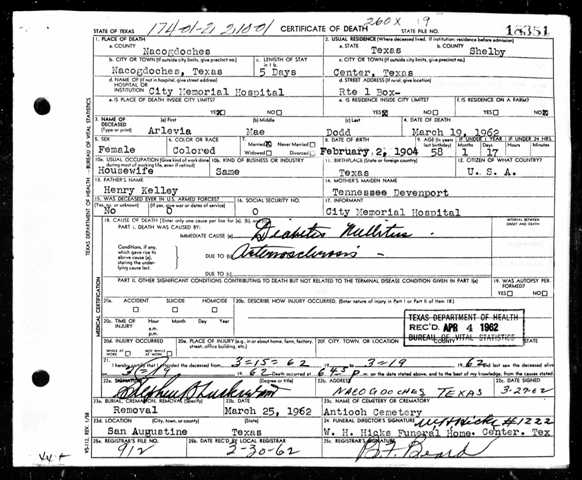 260X 19
STATE OF TEXAS 174-01-21 2,10-01 CERTIFICATE OF DEATH STATE FILE NO. 18351
1. PLACE OF DEATH
a. COUNTY
Nacogdoches
2. USUAL RESIDENCE (Where deceased lived. If institution: residence before admission)
a. STATE b. COUNTY
Texas Shelby
b. CITY OR TOWN (If outside city limits, give precinct no.) c. LENGTH OF STAY in 1 b.
Nacogdoches, Texas 5 Days
c. CITY OR TOWN (If outside city limits, give precinct no.)
Center, Texas
d. NAME OF (If not in hospital, give street address) HOSPITAL OR INSTITUTION
City Memorial Hospital
d. STREET ADDRESS (If rural, give location)
Rte 1 Box-
e. IS PLACE OF DEATH INSIDE CITY LIMITS?
YES NO
e. IS RESIDENCE INSIDE CITY LIMITS? f. IS RESIDENCE ON A FARM?
YES NO YES NO
3. NAME OF DECEASED (Type or print) (a) First (b) Middle (c) Last 4. DATE OF DEATH
Arlevia Mae Dodd March 19, 1962
5. SEX 6. COLOR OR RACE 7. Married Never Married Widowed Divorced 8. DATE OF BIRTH 9. AGE (In years last birthday) IF UNDER 1 YEAR IF UNDER 24 HRS.
Female Colored February 2, 1904 58 1 17
10a. USUAL OCCUPATION (Give kind of work done during most of working life, even if retired) 10b. KIND OF BUSINESS OR INDUSTRY 11. BIRTHPLACE (State or foreign country) 12. CITIZEN OF WHAT COUNTRY?
Housewife Same Texas U. S. A.
13. FATHER'S NAME 14. MOTHER'S MAIDEN NAME
Henry Kelley Tennessee Devenport
15. WAS DECEASED EVER IN U.S. ARMED FORCES? 16. SOCIAL SECURITY NO. 17. INFORMANT
(Yes, no, or unknown) (If yes, give war or dates of service)
No 0 0 City Memorial Hospital
18. CAUSE OF DEATH (Enter only one cause per line for (a), (b), and (c).) INTERVAL BETWEEN ONSET AND DEATH
PART I. DEATH WAS CAUSED BY:
IMMEDIATE CAUSE (a) Diabetes Mellitus
Conditions, if any, which gave rise to above cause (a), stating the underlying cause last. DUE TO (b) Arteriosclerosis -
DUE TO (c)
PART II. OTHER SIGNIFICANT CONDITIONS CONTRIBUTING TO DEATH BUT NOT RELATED TO THE TERMINAL DISEASE CONDITION GIVEN IN PART I(a) 19. WAS AUTOPSY PERFORMED?
YES NO
20a. ACCIDENT SUICIDE HOMICIDE 20b. DESCRIBE HOW INJURY OCCURRED. (Enter nature of injury in Part I or Part II of item 18.)
20c. TIME OF INJURY Hour Month Day Year
a.m.
p.m.
TEXAS DEPARTMENT OF HEALTH
REC'D APR 4 1962
BUREAU OF VITAL STATISTICS
20d. INJURY OCCURRED WHILE AT WORK NOT WHILE AT WORK 20e. PLACE OF INJURY (e.g., in or about home, farm, factory, street, office building, etc.) 20f. CITY, TOWN, OR LOCATION COUNTY STATE
21. I hereby certify that I attended the deceased from 3-15-62 to 3-19 62
62 Death occurred at 6:45 p m. on the date stated above, and to the best of my knowledge, from the causes stated.
22a. SIGNATURE (Degree or title) 22b. ADDRESS 22c. DATE SIGNED
NACOGDOCHES TEXAS 3-27-62
23a. BURIAL, CREMATION, REMOVAL (Specify) 23b. DATE 23c. NAME OF CEMETERY OR CREMATORY
Removal March 25, 1962 Antioch Cemetery
23d. LOCATION (City, town, or county) (State) 24. FUNERAL DIRECTOR'S SIGNATURE W H Hicks #1222
San Augustine Texas W. H. Hicks Funeral Home. Center, Tex
25a. REGISTRAR'S FILE NO. 25b. DATE REC'D BY LOCAL REGISTRAR 25c. REGISTRAR'S SIGNATURE
912 3-30-62 B. F. Beard
TEXAS DEPARTMENT OF HEALTH - BUREAU OF VITAL STATISTICS
MEDICAL CERTIFICATION
VS-112, REV. 1/58